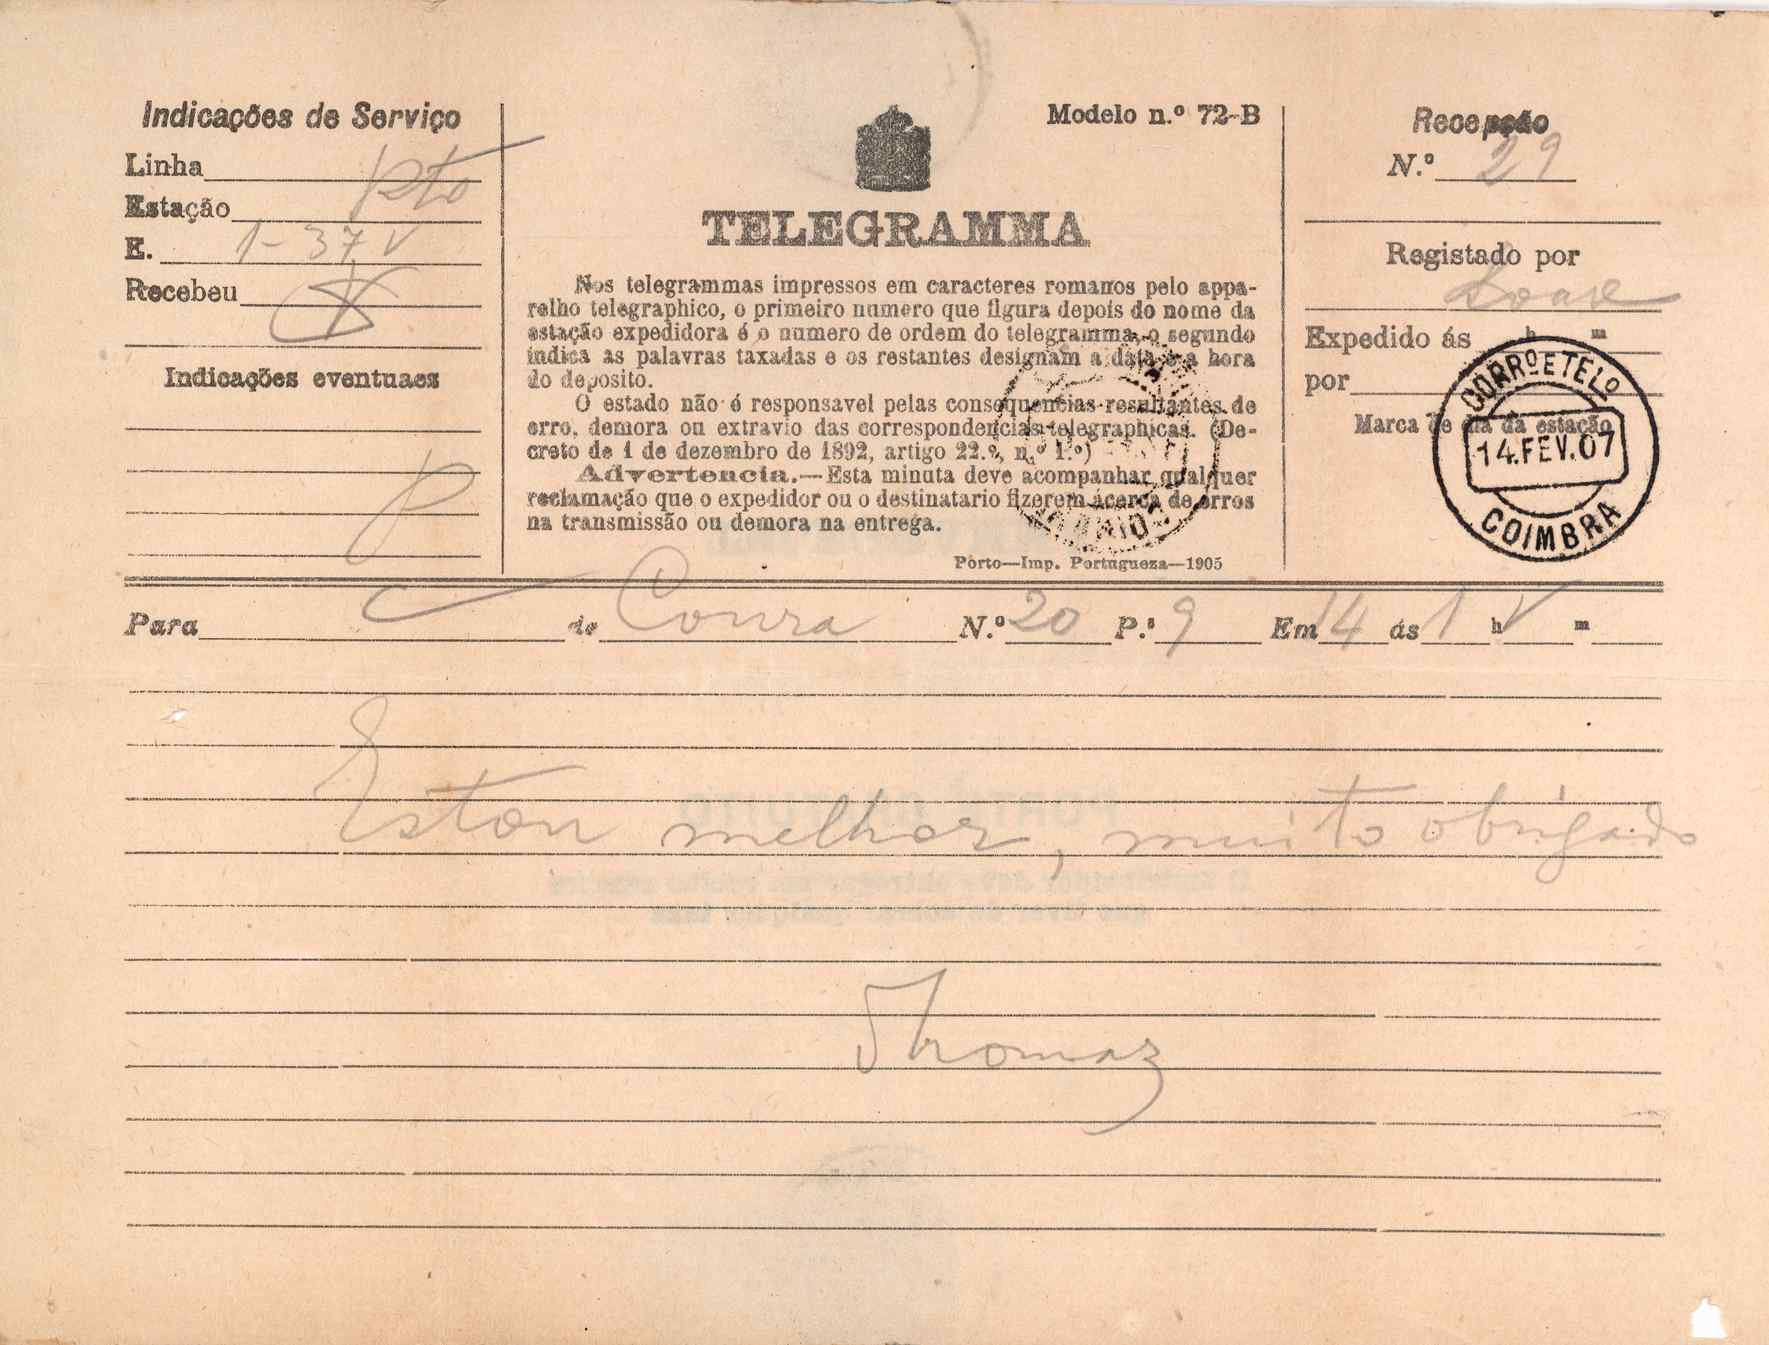 Indicações de Serviço
Linha
Estação Pto
E. 1-37 V
Recebeu
Indicações eventuaes
Modelo n.º 72-B
TELEGRAMMA
Nos telegrammas impressos em caracteres romanos pelo appa-
relho telegraphico, o primeiro numero que figura depois do nome da
estação expedidora é o numero de ordem do telegramma, o segundo
indica as palavras taxadas e os restantes designam a data e a hora
do deposito.
O estado não é responsavel pelas consequencias resultantes de
erro, demora ou extravio das correspondencias telegraphicas. (De-
creto de 1 de dezembro de 1892, artigo 22.º, n.º 1.º)
Advertencia.—Esta minuta deve acompanhar qualquer
reclamação que o expedidor ou o destinatario fizerem ácerca de erros
na transmissão ou demora na entrega.
Porto—Imp. Portugueza—1905
Recepção
N.º 29
Registado por
Expedido ás h m
por
Marca de dia da estação
CORRº E TELº
14.FEV.07
COIMBRA
Para de Coura N.º 20 P.ª 9 Em 14 ás 1 h V m
Estou melhor, muito obrigado
Thomaz